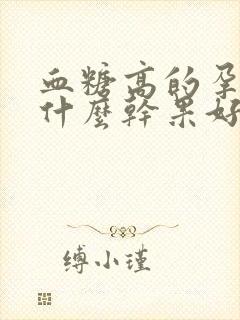 血糖高的孕
什麼幹果好
缚小瑾